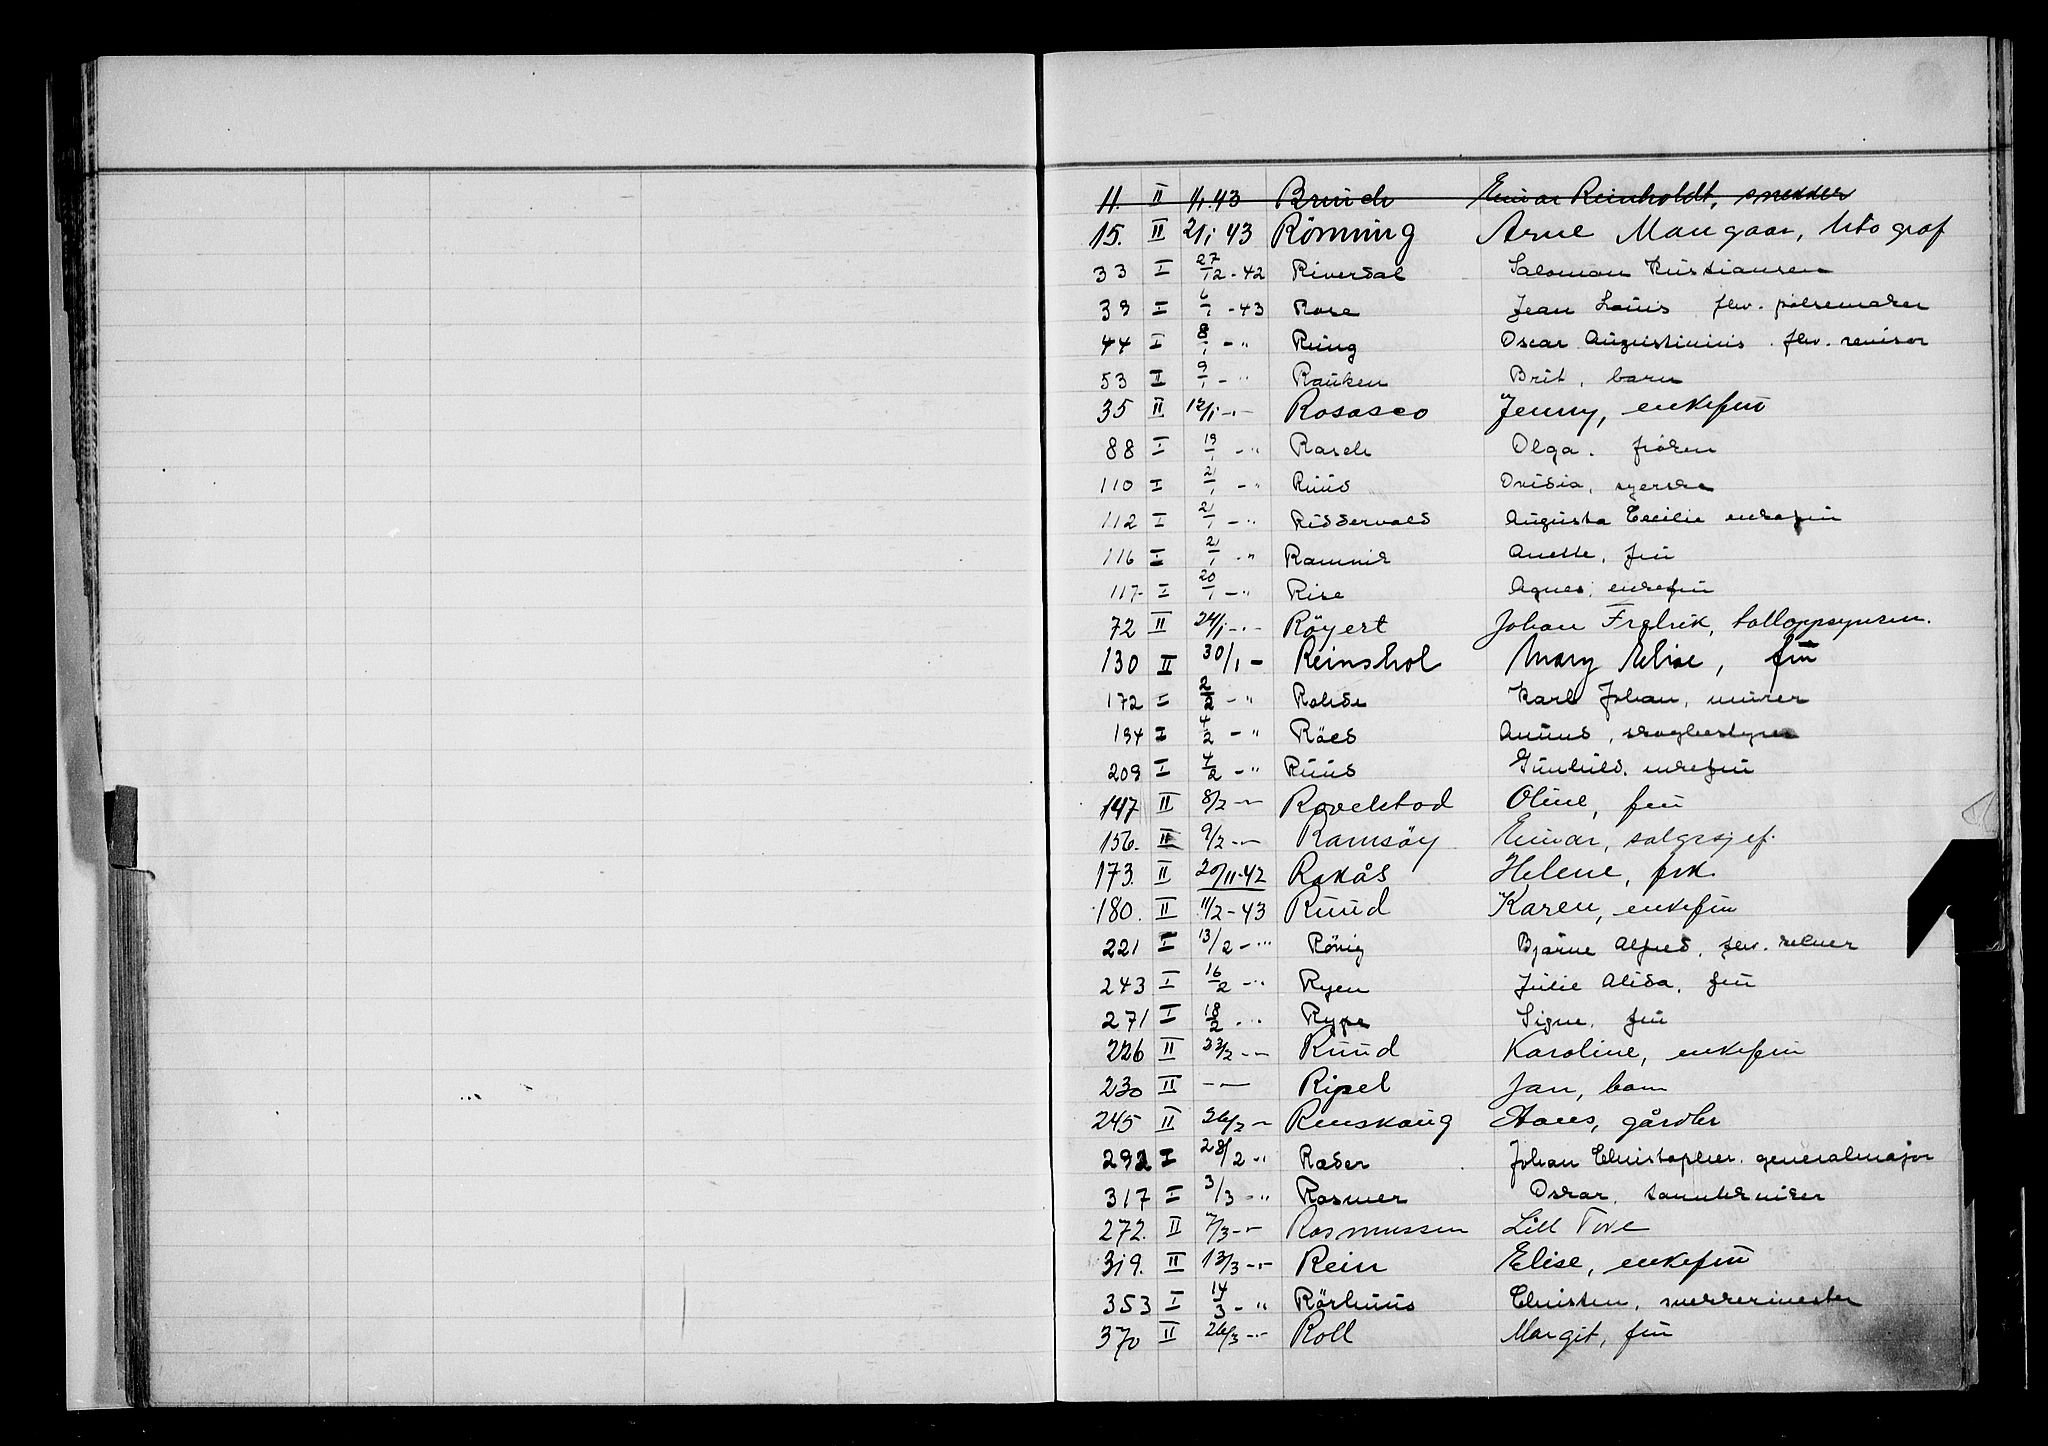 11. II 1/1.43 Bruuch Einar Reinholdt, snekker
15. II 21/1 43 Rönning Arne Mangaar, litograf
33 I 27/12-42 Riverdal Salomon Kristiansen
39 I 6/1-43 Rose Jean Louis fhv. pølsemaker
44 I 8/1 - " Ring Oscar Augustinius. fhv. revisor
53 II 9/1 - " Rauken Brit, barn
35 II 12/1 -"- Rosasco Jenny, enkefru
88 I 19/1 - " Rasch Olga. fröken
110 I 21/1 - " Ruud Ovidia, syerske
112 I 21/1 - " Riddervold Augusta Cecilie enkefru
116 I 21/1 - " Ramvik Anette, fru
117- I 20/1 - " Rise Agnes, enkefru
72 II 24/1 -"- Röyert Johan Fredrik, tolloppsynsm.
130 II 30/1 - Reinshol Mary Elise, fru
172 I 2/2 - " Rohde Karl Johan, murer
194 I 4/2 - " Röed Anund, skogbestyrer
209 I 4/2 - " Ruud Gunhild. enkefru
147 II 8/2 -"- Rovelstad Oline, fru
156. II 9/2 -"- Ramsöy Einar, salgssjef.
173. II 20/11-42 Rakås Helene, frk.
180. II 11/2-43 Ruud Karen, enkefru
221 I 13/2 - " Rönig Bjarne Alfred, fhv. kelner
243 I 16/2 - " Ryen Julie Alida, fru
271 I 18/2 - " Rype Signe. fru
226 II 23/2 -"- Ruud Karoline, enkefru
230 II -"- Ripel Jan, barn
245 II 26/2 - Renskaug Hans, gårdbr
292 I 28/2 - " Ræder Johan Christopher. generalmajor
317 I 3/3 - " Rasmer Oskar, tanntekniker
272. II 7/3 -"- Rasmussen Lill Tove
319. II 13/3 -"- Rein Elise, enkefru
353 I 14/3 - " Rörhuus Christen, snekkermester
370 II 26/3 -"- Roll Margit, fru